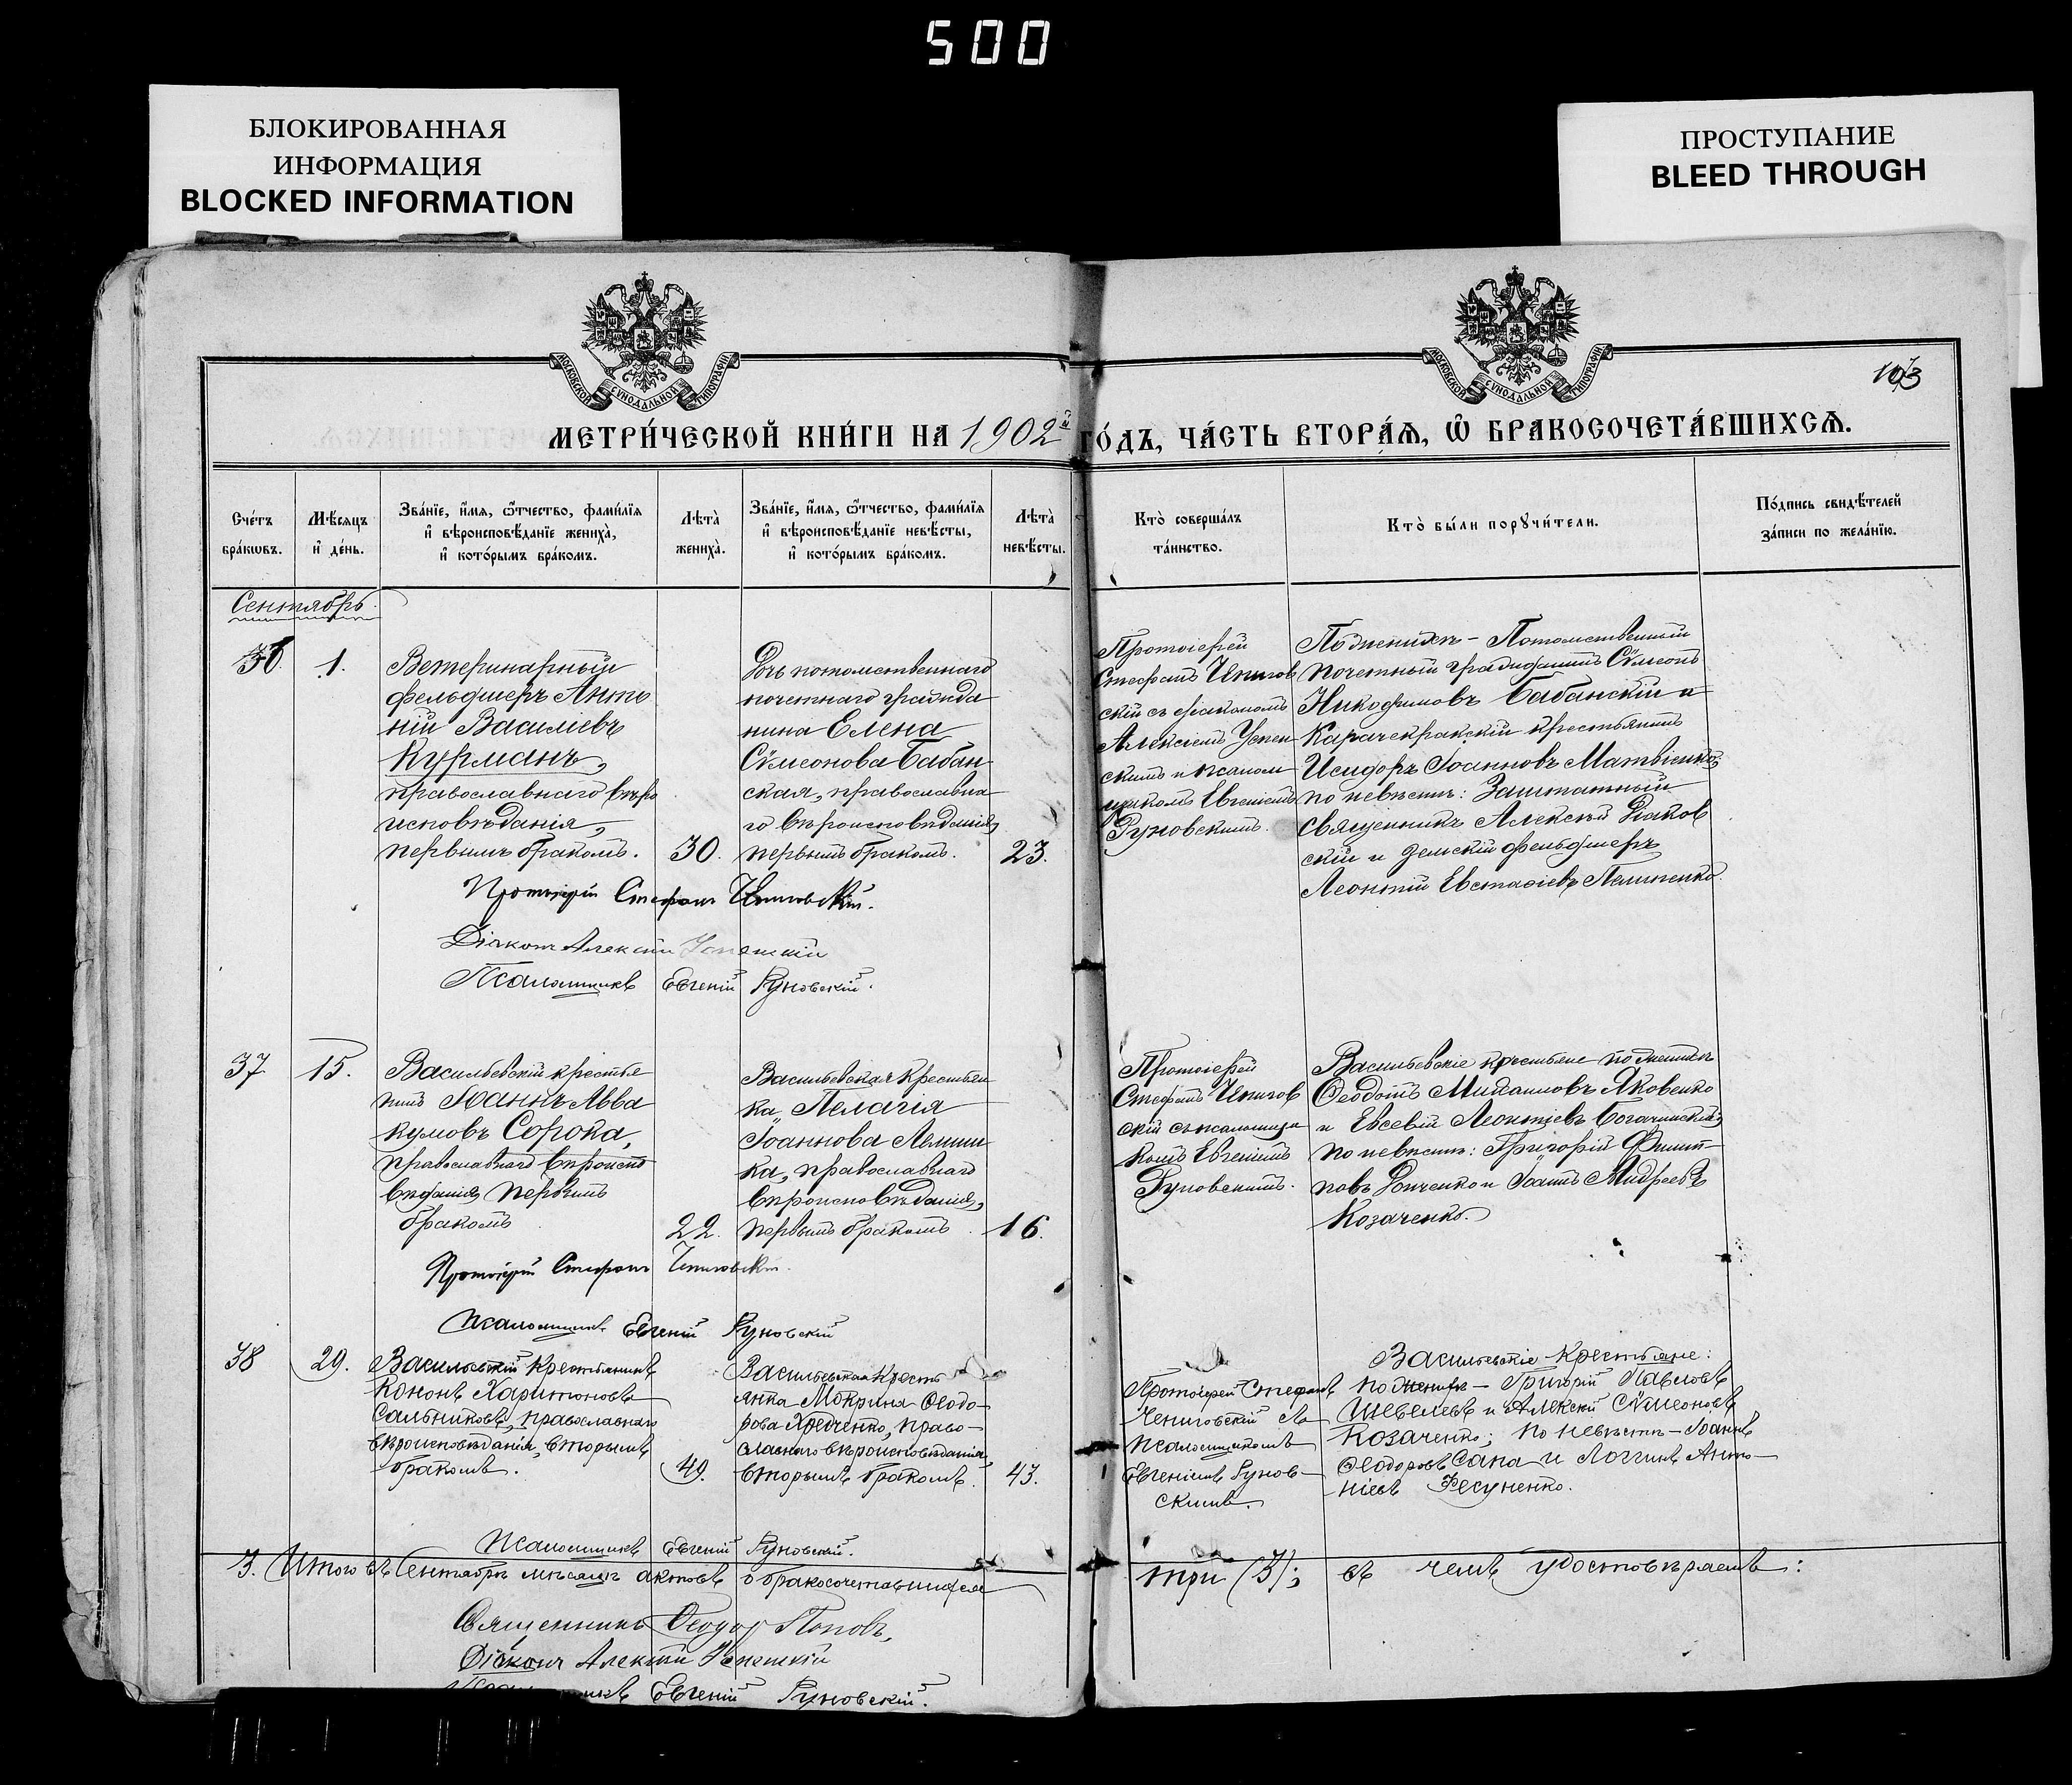 500
БЛОКИРОВАННАЯ
ИНФОРМАЦИЯ
BLOCKED INFORMATION
ПРОСТУПАНИЕ
BLEED THROUGH
МОСКОВСКОЙ СѴНОДАЛЬНОЙ ТИПОГРАФІИ
МОСКОВСКОЙ СѴНОДАЛЬНОЙ ТИПОГРАФІИ
МЕТРИ́ЧЕСКОЙ КНИ́ГИ НА 1902й ГО́ДЪ, ЧА́СТЬ ВТОРА́Ѧ, Ѽ БРАКОСОЧЕТА́ВШИХСѦ.
Сче́тъ
бра́кѡвъ.
Мѣ́сяцъ
и҆ де́нь.
Зва́нїе, и҆́мя, ѻ҆́тчество, фами́лїя
и҆ вѣроисповѣ́данїе жениха̀,
и҆ кото́рымъ бра́комъ.
Лѣ́та̀
жениха̀.
Зва́нїе, и҆́мя, ѻ҆́тчество, фами́лїя
и҆ вѣроисповѣ́данїе невѣ́сты,
и҆ кото́рымъ бра́комъ.
Лѣ́та̀
невѣ́сты.
Кто̀ соверша́лъ
та́инство.
Кто̀ бы́ли порꙋчи́тели.
По́дпись свидѣ́телей
за́писи по жела́нїю.
Сентябрь.
36.
1.
Ветеринарный
фельдшеръ Анто
ній Василіевъ
Курманъ,
православнаго вѣро
исповѣданія,
первымъ бракомъ.
30.
Дочь потомственнаго
почетнаго гражда
нина Елена
Сѵмеонова Бабан
ская, православна
го вѣроисповѣданія,
первымъ бракомъ.
23.
Протоіерей
Стефанъ
скій съ діакономъ
Алексіемъ Успен
скимъ и псалом
щикомъ Евгеніемъ
Руновскимъ.
По женихѣ - Потомственный
почетный гражданинъ Сѵмеонъ
Никодимовъ Бабанскій и
Карачекракскій крестьянинъ
Исидоръ Іоанновъ Матвіенко;
по невѣстѣ: Заштатный
священникъ Алексѣй Діаков
скій и земскій фельдшеръ
Леонтій Евстафіевъ
Протоіерей Стефанъ
Діаконъ Алексій Успенскій
Псаломщикъ Евгеній Руновскій.
37
15.
Васильевскій крестья
нинъ Іоаннъ Авва
кумовъ Сорока,
православнаго вѣроиспо
вѣданія, первымъ
бракомъ
22.
Васильевская крестьян
ка, Пелагія
Іоаннова
ка, православнаго
вѣроисповѣданія,
первымъ бракомъ.
16.
Протоіерей
Стефанъ
скій съ псаломщи
комъ Евгеніемъ
Руновскимъ.
Васильевскіе крестьяне по женихѣ
Ѳеодотъ Михаиловъ Яковенко
и Евсевій Леонтіевъ
по невѣстѣ: Григорій Филип
повъ и Іоаннъ Андреевъ
Козаченко.
Протоіерей Стефанъ
Псаломщикъ Евгеній Руновскій
38
29.
Васильевскій крестьянинъ
Кононъ Харитоновъ
Сальниковъ, православнаго
вѣроисповѣданія, вторымъ
бракомъ.
49.
Васильевская кресть
янка Мокрина Ѳеодо-
рова право-
славнаго вѣроисповѣданія,
вторымъ бракомъ.
43.
Протоіерей Стефанъ
съ
псаломщикомъ
Евгеніемъ Рунов-
скимъ.
Васильевскіе крестьяне:
по женихѣ - Григорій Павловъ
и Алексій Сѵмеоновъ
Козаченко; по невѣстѣ - Іоаннъ
Ѳеодоровъ и Логгинъ Анто-
ніевъ Фесуненко.
Псаломщикъ Евгеній Руновскій.
3. Итого въ Сентябрѣ мѣсяцѣ актовъ о бракосочетавшихся три (3); въ чемъ удостовѣряемъ:
Священникъ Ѳеодоръ Поповъ,
Діаконъ Алексій Успенскій
Псаломщикъ Евгеній Руновскій.